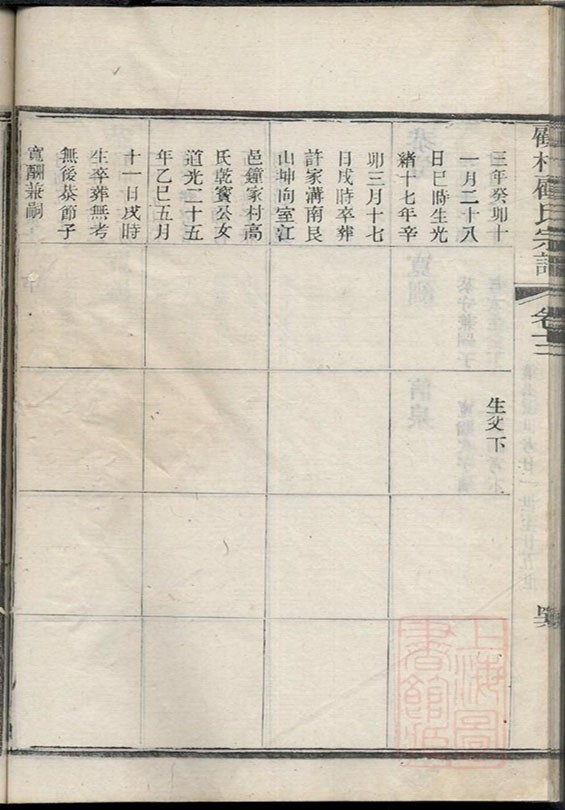 三年癸卯十
一月二十八
日巳時生光
緒十七年辛
卯三月十七
日戌時卒葬
許家溝南艮
山坤向室江
邑鐘家村高
氏乾賓公女
道光二十五
年乙巳五月
十一日戌時
生卒葬無考
無後恭節子
寬酬兼嗣
生父下
村 氏宗譜
卷十二
上海圖
書館藏